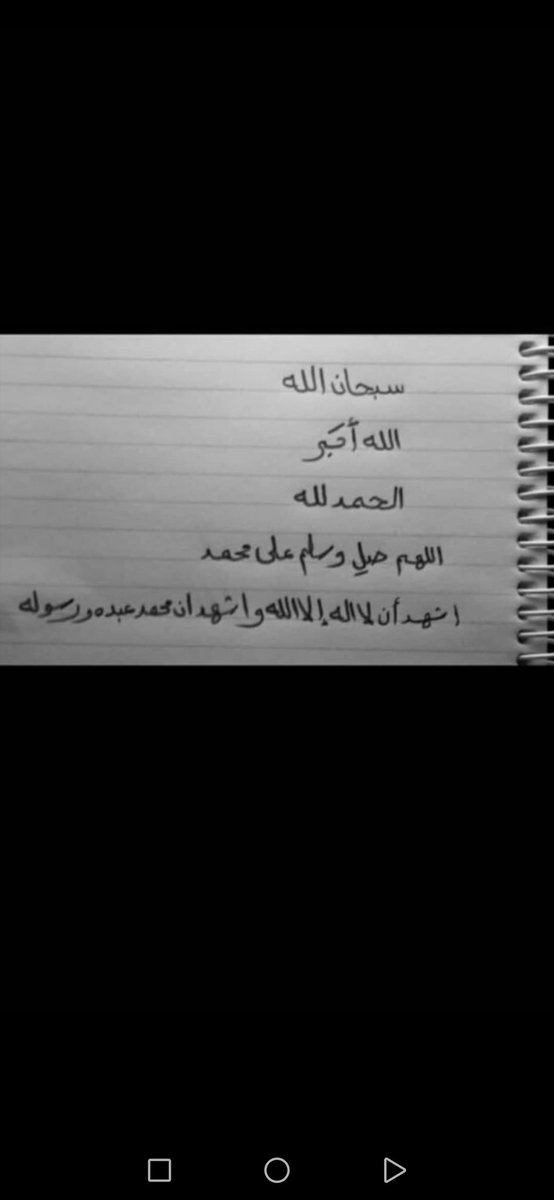 سبحان الله
الله أكبر
الحمد لله
اللهم صلِ وسلم على محمد
اشهد أن لا اله إلا الله واشهد ان محمد عبده ورسوله